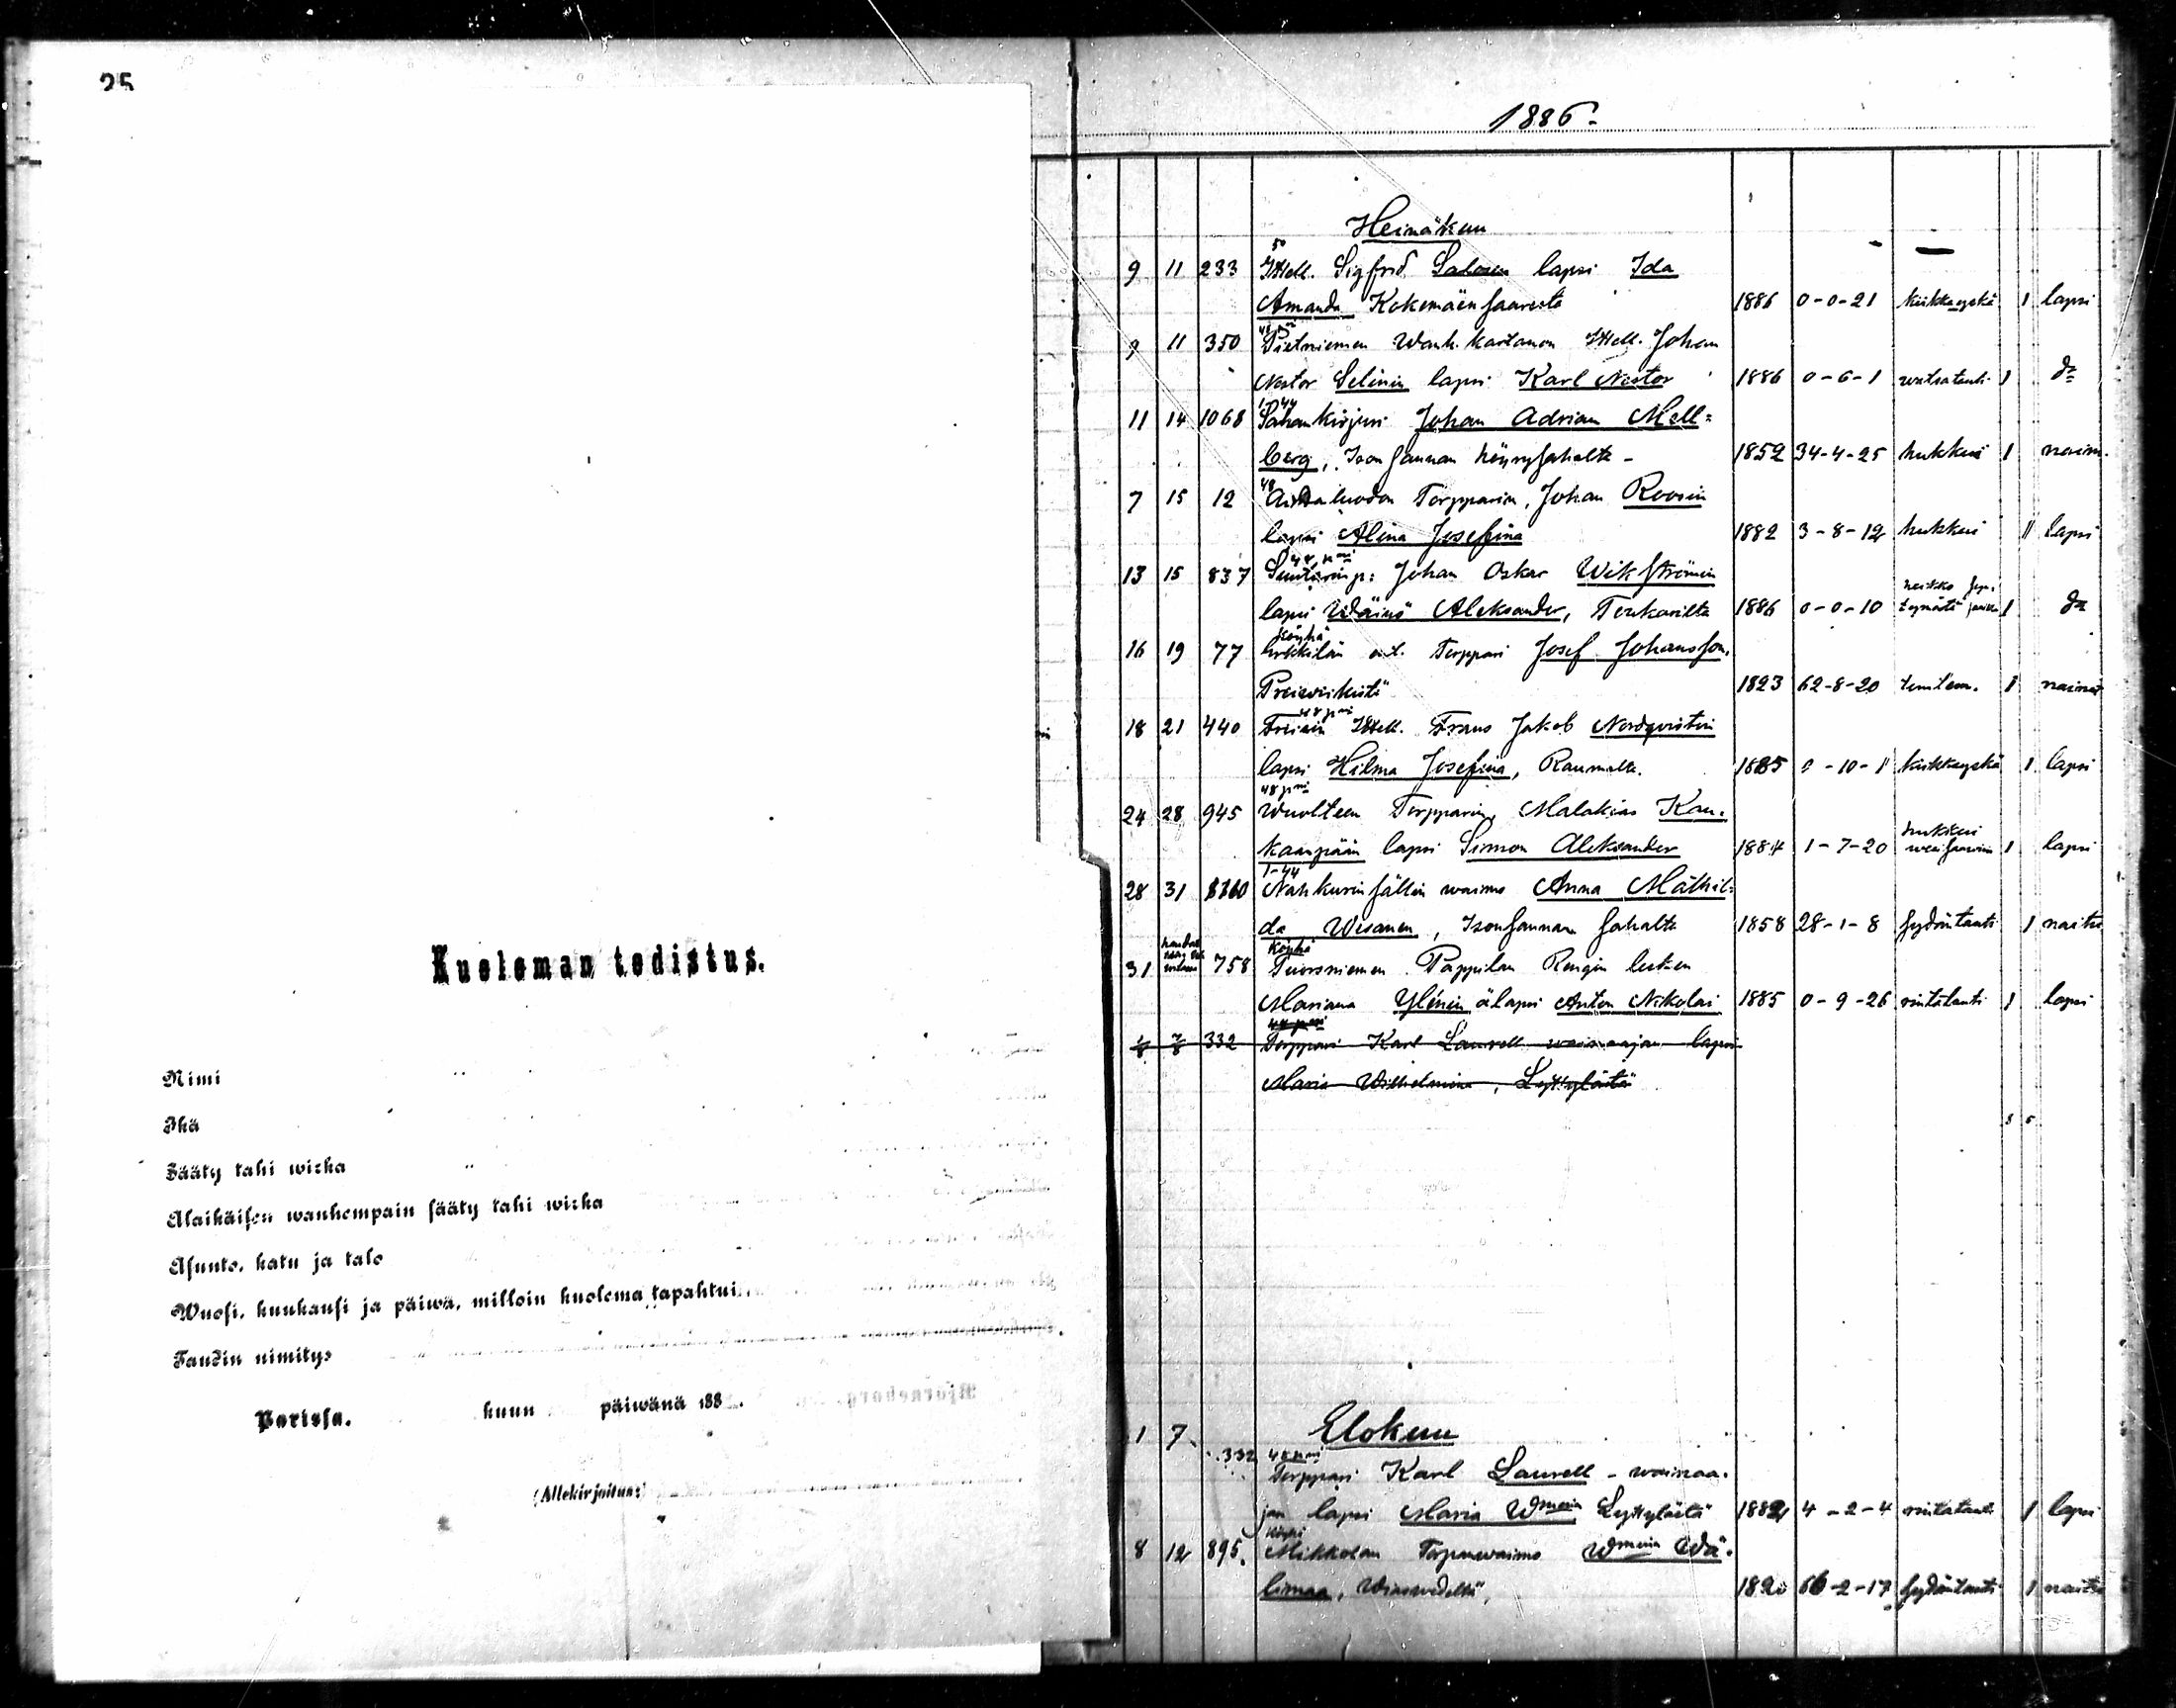 25
Kuoleman todistus.
Nimi
Ikä
Sääty tahi wirka
Alaikäisen wanhempain sääty tahi wirka
Asunto, katu ja talo
Wuosi, kuukausi ja päiwä, milloin kuolema tapahtui
Taudin nimitys
Porissa, kuun päiwänä 188 .
(Allekirjoitus:)
1886.
Heinäkuu
50
9 11 233 Itsell. Sigfrid Salosen lapsi Ida
Amanda Kokemäensaaresta 1886 0-0-21 kuikkayskä 1 lapsi
9 11 350 Pietniemen Wanh. kartanon Itsell. Johan
Nestor Selinin lapsi Karl Nestor 1886 0-6-1 watsataut. 1 do
1-44
11 14 1068 Sahankirjuri Johan Adrian Mell=
berg, Isonsannan höyrysahalta - 1852 34-4-25 hukkui 1 nain.
48
7 15 12 Torpparin, Johan Roosin
lapsi Alina Josefina 1882 3-8-12 hukkui 1 lapsi
13 15 837 Johan Oskar Wikströmin
lapsi Wäinö Aleksander, 1886 0-0-10 1 do
köyhä
16 19 77 ent. Torppari Josef Johansson,
Preiwiikistä 1823 62-8-20 1 nainut
48 pni
18 21 440 Itsell. Frans Jakob Nordqvistin
lapsi Hilma Josefina, Raumalta. 1885 0-10-1 kuikkayskä 1 lapsi
48 pni
24 28 945 Wuolteen Torpparin, Malakias Kan=
kaanpään lapsi Simon Aleksander 1884 1-7-20 hukkui 1 lapsi
1-44
28 31 1160 Nahkurinsällin waimo Anna Mathil=
da Wesanen, Isonsannan sahalta 1858 28-1-8 sydäntauti 1 naitu
köyhä
31 758 Tuorsniemen Pappilan Rengin lesken
Mariana Ylinin älapsi Anton Nikolai 1885 0-9-26 rintatauti 1 lapsi
1/8 7/8 332 Torppari Karl Laurell wainaajan lapsi
Maria Wilhelmina, Lyttylästä
5 5
Elokuu
1 7 332 48 pni
Torppari Karl Laurell - wainaa=
jan lapsi Maria Wmina Lyttylästä 1882 4-2-4 rintataut. 1 lapsi
köyhä
8 12 895. Mikkolan Torp.waimo Wmina Wä=
limaa, 1820 66-2-17 sydäntauti 1 naitu